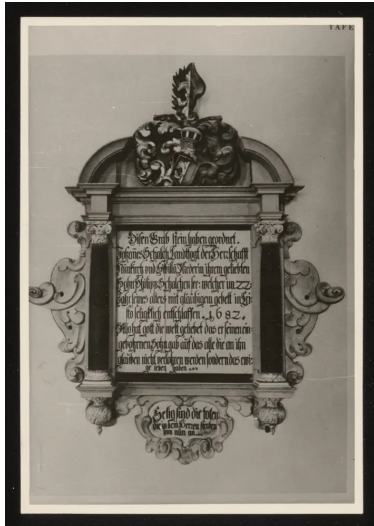 TAFE
Disen Grab stein haben geordnet.
Johañes Schalch Landtvogt der Herrschafft
Neükirch vnd Sibilla Riederin ihrem geliebten
Sohn Philip Schalchen sel: welcher im 22
Jahr seines alters mit gläübigem gebett in Chri
sto seligklich entschlaffen. 1682.
Also hat gott die welt geliebet das er seinen ein
gebohrnen Sohn gab auf das alle die an ihn
glaüben nicht verlohren werden sondern das ewi
ge leben haben
Selig sind die toten
die in dem Herren sterben
von nun an